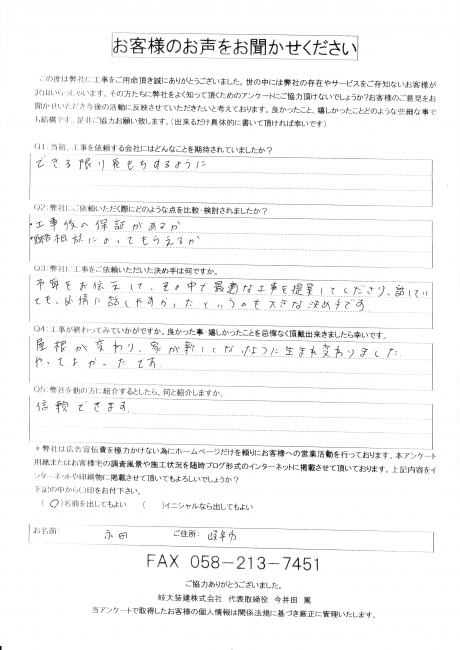 お客様のお声をお聞かせください
この度は弊社に工事をご用命頂き誠にありがとうございます。世の中には弊社の存在やサービスをご存知ないお客様が
沢山いらっしゃいます。その方たちに弊社をよく知って頂くためのアンケートにご協力頂けないでしょうか?お客様のご意見をお
聞かせいただき今後の活動に反映させていただきたいと考えております。良かったこと、嬉しかったことどのような些細な事で
も結構です。是非ご協力お願い致します。(出来るだけ具体的に書いて頂ければ幸いです)
Q1:当初、工事を依頼する会社にはどんなことを期待されていましたか?
できる限り長もちするように
Q2:弊社にご依頼いただく際にどのような点を比較・検討されましたか?
・工事後の保証があるか
・相談にのってもらえるか
Q3:弊社に工事をご依頼いただいた決め手は何ですか。
予算をお伝えして、その中で最適な工事を提案してくださり、話してい
ても、
話しやすかったというのも大きな決め手です。
Q4:工事が終わってみていかがですか。良かった事・嬉しかったことを忌憚なく頂戴出来きましたら幸いです。
屋根が変わり、家が新しくなったように生まれ変わりました。
やってよかったです。
Q5:弊社を他の方に紹介するとしたら、何と紹介しますか。
信頼できます。
*弊社は広告宣伝費を極力かけない為にホームページだけを頼りにお客様への営業活動を行っております。本アンケート
用紙またはお客様宅の調査風景や施工状況を随時ブログ形式のインターネットに掲載させて頂いております。上記内容をイ
ンターネットや印刷物に掲載させて頂いてもよろしいでしょうか?
下記の中から〇印をお付下さい。
(〇)名前を出してもよい ( )イニシャルなら出してもよい
お名前: 永田 ご住所: 岐阜市
FAX 058-213-7451
ご協力ありがとうございました。
岐大装建株式会社 代表取締役 今井田 篤
当アンケートで取得したお客様の個人情報は関係法規に基づき厳正に管理いたします。